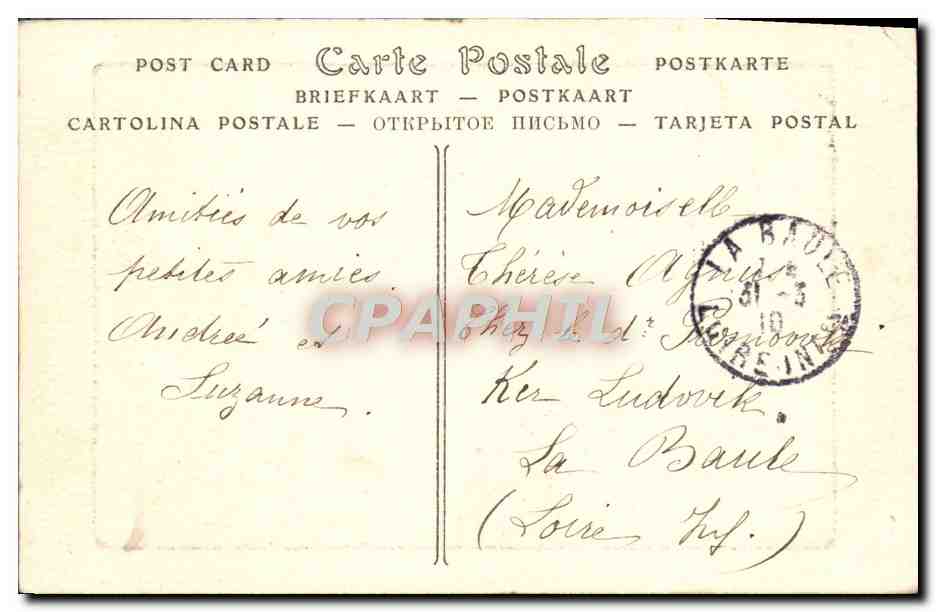 POST CARD Carte Postale POSTKARTE
BRIEFKAART — POSTKAART
CARTOLINA POSTALE — ОТКРЫТОЕ ПИСЬМО — TARJETA POSTAL
Amitiés de vos
petites amies
Andreé et
Suzanne.
Mademoiselle
Thérèse Agnus
Chez le dr
Ker Ludovik.
La Baule
(Loire Inf.)
LA BAULE
31 -3
10
LOIRE INFRE
CPAPHIL